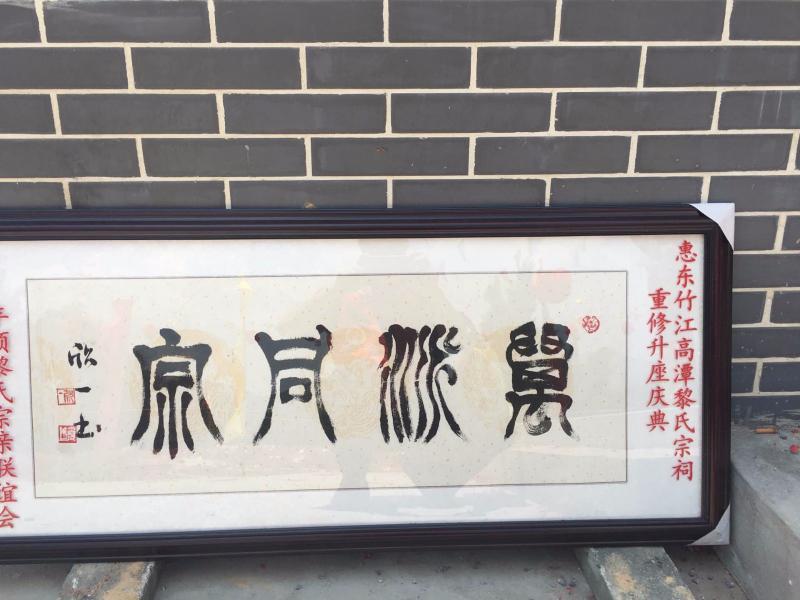 惠东竹江高潭黎氏宗祠
重修升座庆典
萬派同宗
欣一书
丰顺黎氏宗亲联谊会